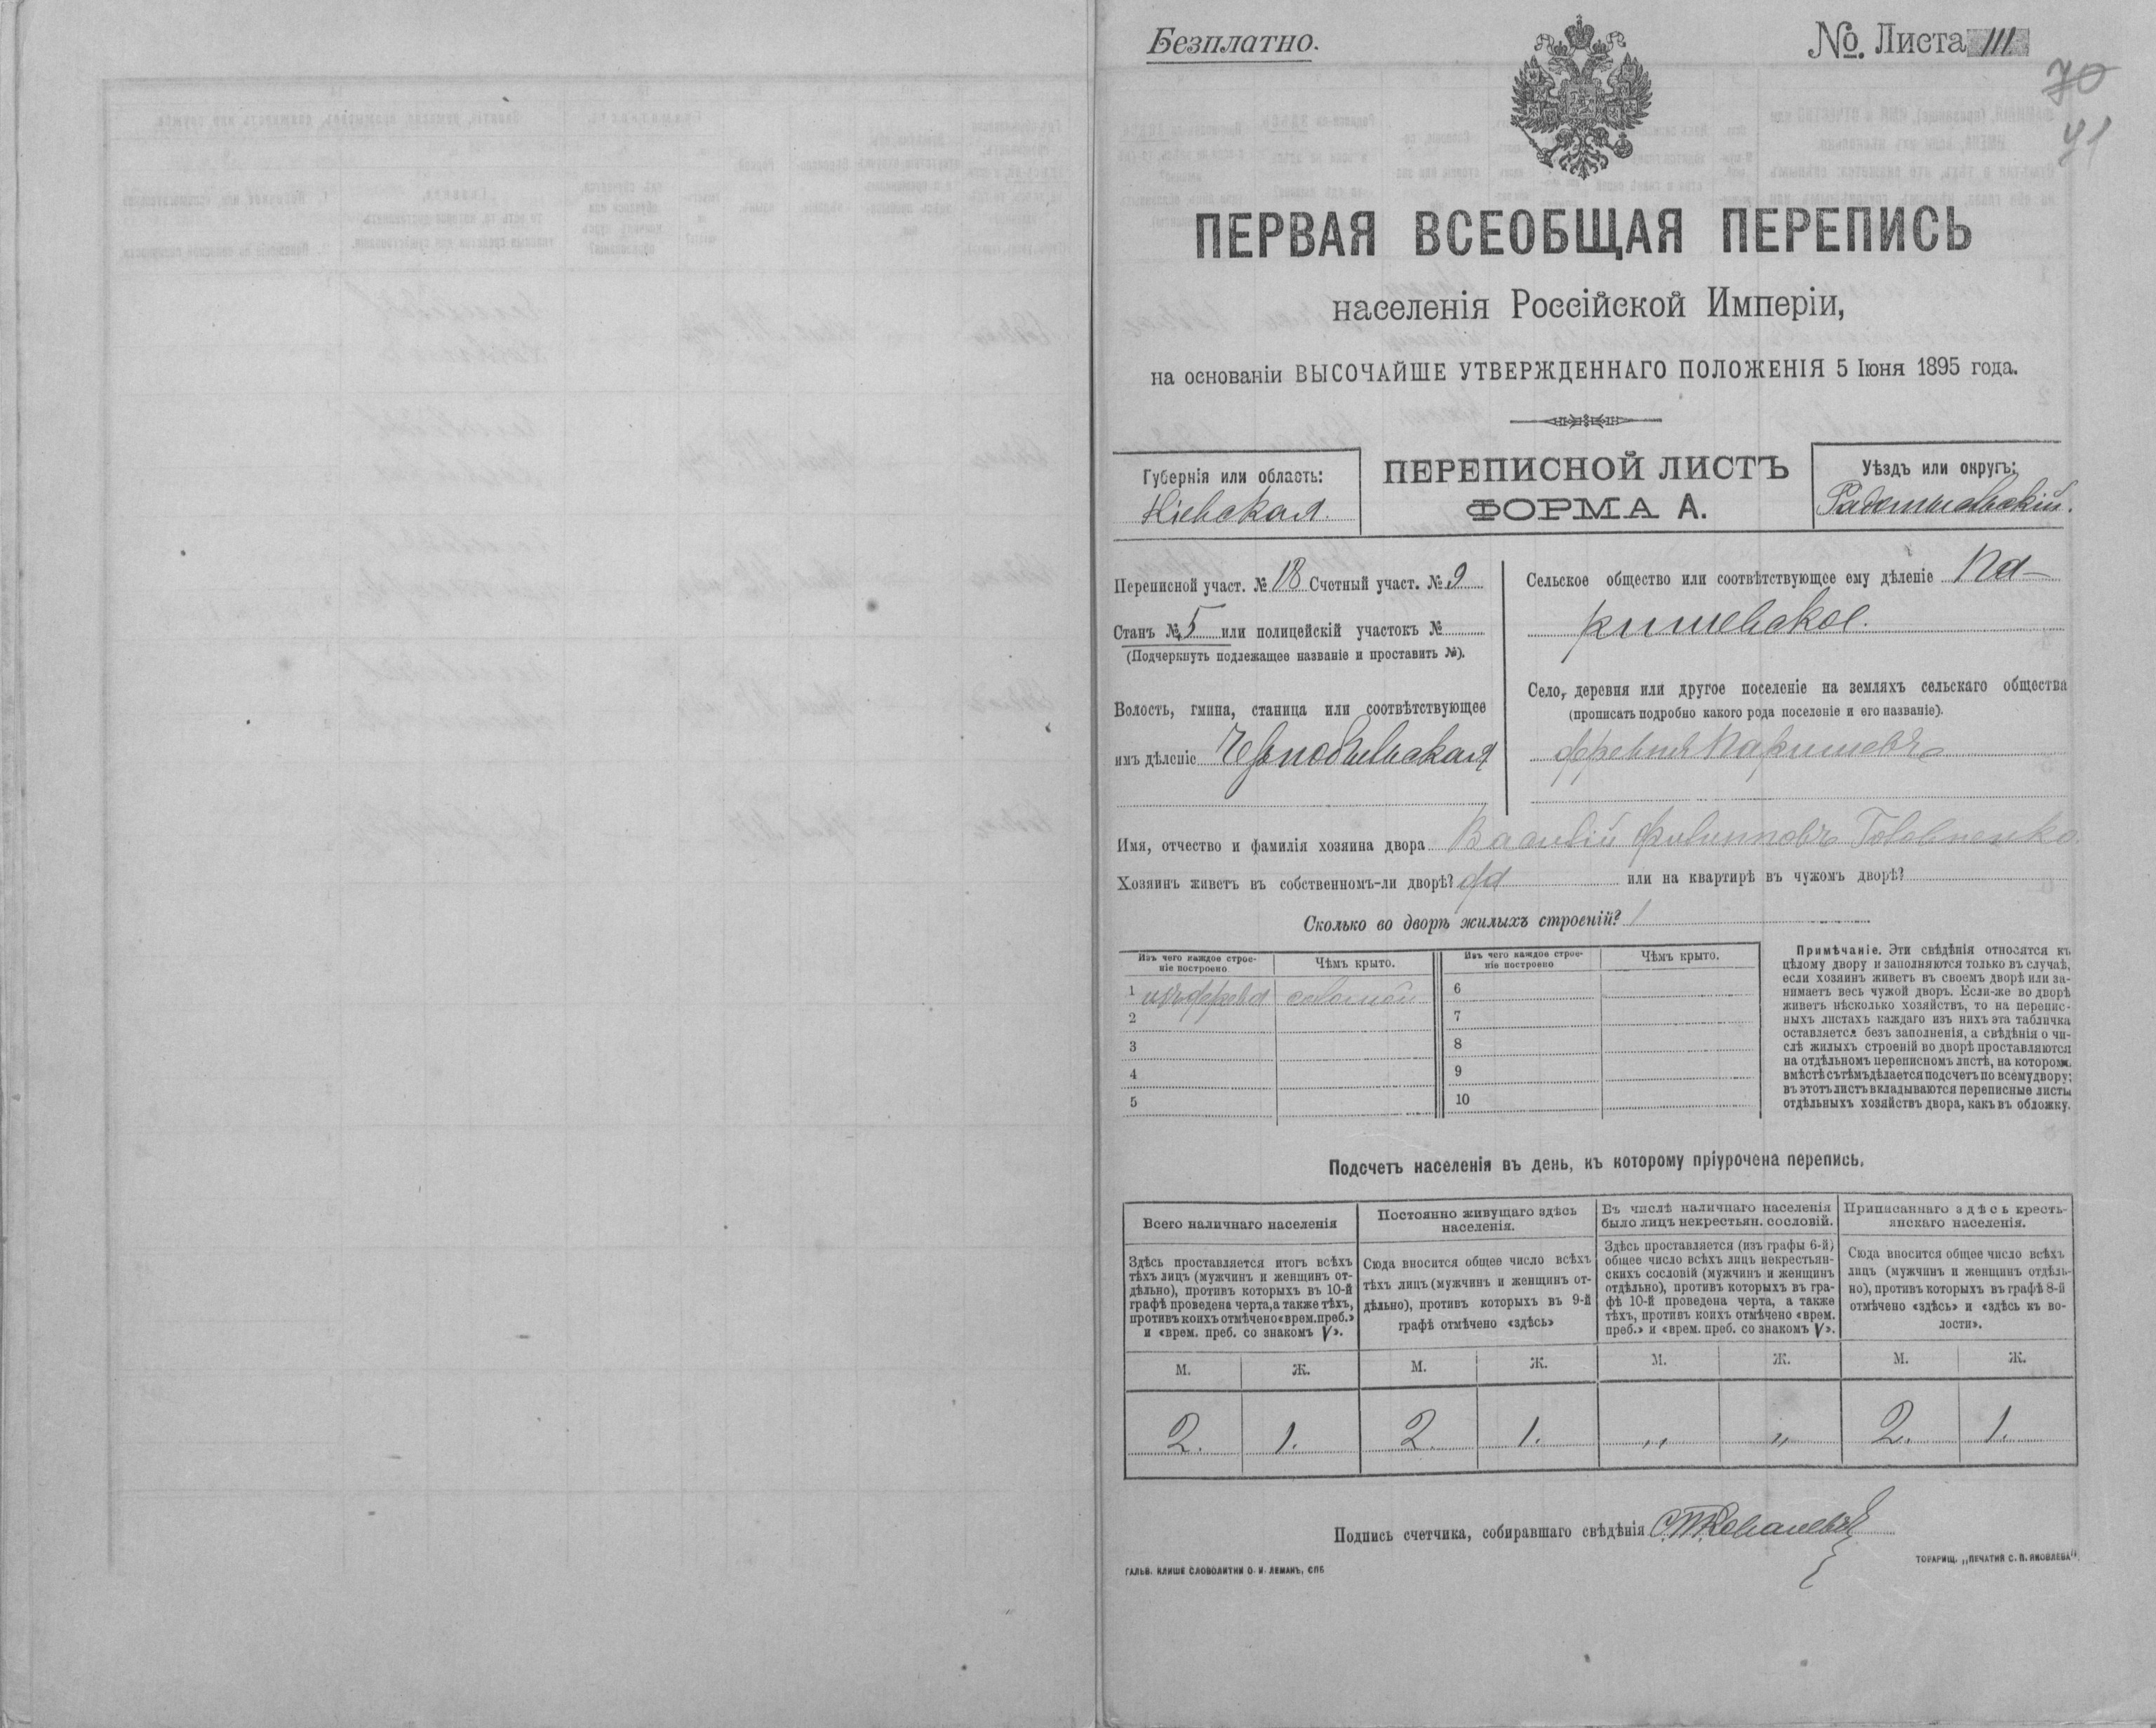 Безплатно.
№. Листа 111
70
41
ПЕРВАЯ ВСЕОБЩАЯ ПЕРЕПИСЬ
населенія Россійской Имперіи,
на основаніи ВЫСОЧАЙШЕ УТВЕРЖДЕННАГО ПОЛОЖЕНІЯ 5 Іюня 1895 года.
Губернія или область:
Кіевская.
ПЕРЕПИСНОЙ ЛИСТЪ
ФОРМА А.
Уѣздъ или округъ:
Радомысльскій.
Переписной участ. № 18 Счетный участ. № 9
Станъ № 5 или полицейскій участокъ №
(Подчеркнуть подлежащее названіе и проставить №).
Волость, гмина, станица или соотвѣтствующее
имъ дѣленіе Чернобыльская
Сельское общество или соотвѣтствующее ему дѣленіе Па-
ришевское.
Село, деревня или другое поселеніе на земляхъ сельскаго общества
(прописать подробно какого рода поселеніе и его названіе).
деревня Паришевъ
Имя, отчество и фамилія хозяина двора Василій Филипповъ Головненко.
Хозяинъ живетъ въ собственномъ-ли дворѣ? да или на квартирѣ въ чужомъ дворѣ?
Сколько во дворѣ жилыхъ строеній? 1
Изъ чего каждое строе-
ніе построено
Чѣмъ крыто.
Изъ чего каждое строе-
ніе построено
Чѣмъ крыто.
1 изъ дерева соломой
2
3
4
5
6
7
8
9
10
Примѣчаніе. Эти свѣдѣнія относятся къ
цѣлому двору и заполняются только въ случаѣ,
если хозяинъ живетъ въ своемъ дворѣ или за-
нимаетъ весь чужой дворъ. Если-же во дворѣ
живетъ нѣсколько хозяйствъ, то на перепис-
ныхъ листахъ каждаго изъ нихъ эта табличка
оставляется безъ заполненія, а свѣдѣнія о чи-
слѣ жилыхъ строеній во дворѣ проставляются
на отдѣльномъ переписномъ листѣ, на которомъ
вмѣстѣ съ тѣмъ дѣлается подсчетъ по всему двору;
въ этотъ листъ вкладываются переписные листы
отдѣльныхъ хозяйствъ двора, какъ въ обложку.
Подсчетъ населенія въ день, къ которому пріурочена перепись.
Всего наличнаго населенія
Здѣсь проставляется итогъ всѣхъ
тѣхъ лицъ (мужчинъ и женщинъ от-
дѣльно), противъ которыхъ въ 10-й
графѣ проведена черта, а также тѣхъ,
противъ коихъ отмѣчено «врем. преб.»
и «врем. преб. со знакомъ V».
Постоянно живущаго здѣсь
населенія.
Сюда вносится общее число всѣхъ
тѣхъ лицъ (мужчинъ и женщинъ от-
дѣльно), противъ которыхъ въ 9-й
графѣ отмѣчено «здѣсь»
Въ числѣ наличнаго населенія
было лицъ некрестьян. сословій.
Здѣсь проставляется (изъ графы 6-й)
общее число всѣхъ лицъ некрестьян-
скихъ сословій (мужчинъ и женщинъ
отдѣльно), противъ которыхъ въ гра-
фѣ 10-й проведена черта, а также
тѣхъ, противъ коихъ отмѣчено «врем.
преб.» и «врем. преб. со знакомъ V».
Приписаннаго здѣсь кресть-
янскаго населенія.
Сюда вносится общее число всѣхъ
лицъ (мужчинъ и женщинъ отдѣль-
но), противъ которыхъ въ графѣ 8-й
отмѣчено «здѣсь» и «здѣсь къ во-
лости».
М. Ж. М. Ж. М. Ж. М. Ж.
2. 1. 2. 1. „ „ 2. 1.
Подпись счетчика, собиравшаго свѣдѣнія
ГАЛЬВ. КЛИШЕ СЛОВОЛИТНИ О. И. ЛЕМАНЪ, СПБ
ТОВАРИЩ. „ПЕЧАТНЯ С. П. ЯКОВЛЕВА".